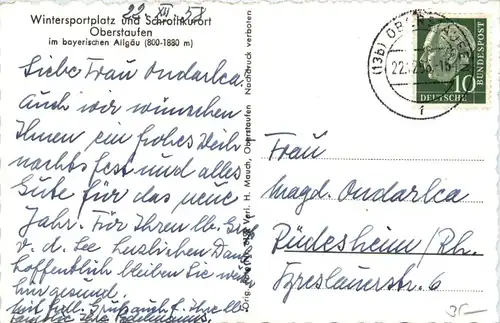 22. XII 58
Wintersportplatz und Schrothkurort
Oberstaufen
im bayerischen Allgäu (800-1880 m)
Liebe Frau Ondarlea
Auch wir wünschen
Ihnen ein frohes Weih
nachtsfest und alles
Gute für das neue
Jahr. Für Ihren lb. Gruß
v. d. See herzlichen Dank
hoffentlich bleiben Sie weiter
hin gesund.
auf Ihre lb.
Verl. H. Mauch, Oberstaufen Nachdruck verboten
(13b)
22.12.58
DEUTSCHE BUNDESPOST
10
Frau
Magd. Ondarlea
Rüdesheim/Rh.
6